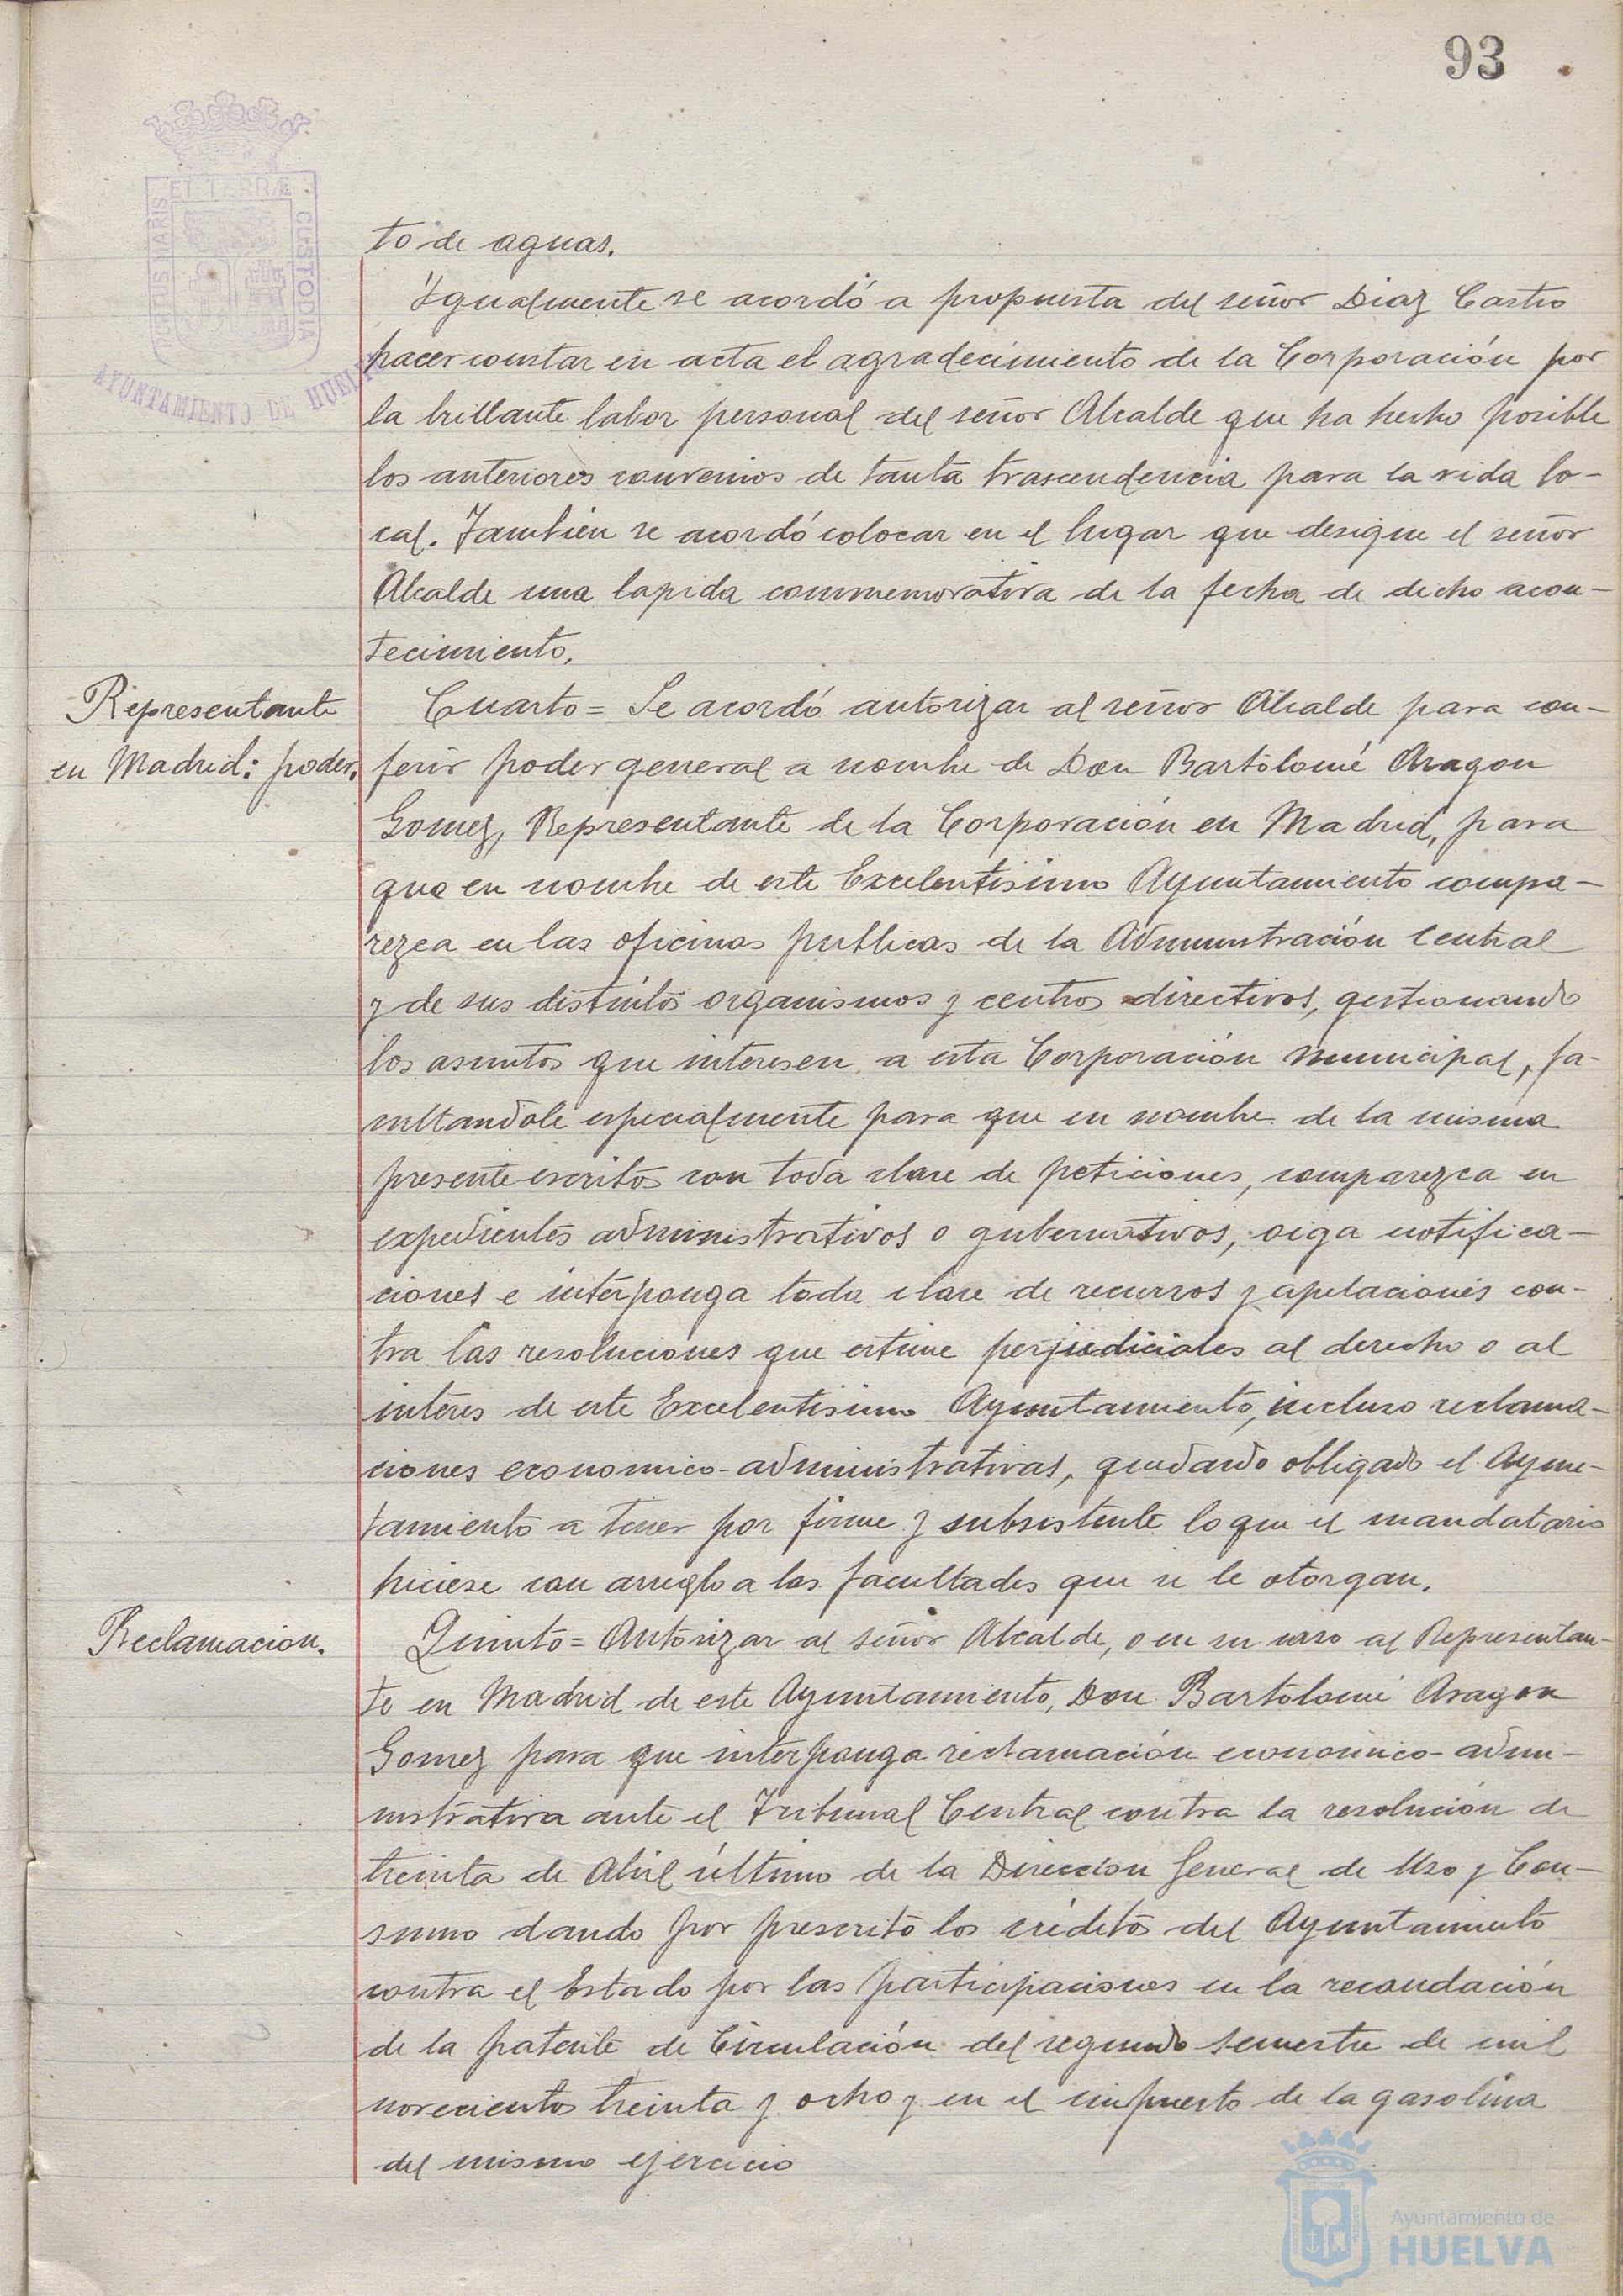 93
ET TERRÆ
PORTUS MARIS
CUSTODIA
AYUNTAMIENTO DE HUELVA
to de aguas.
Igualmente se acordó a propuesta del señor Diaz Castro
hacer constar en acta el agradecimiento de la Corporación por
la brillante labor personal del señor Alcalde que ha hecho posible
los anteriores convenios de tanta trascendencia para la vida lo-
cal. Tambien se acordó colocar en el lugar que designe el señor
Alcalde una lapida conmemorativa de la fecha de dicho acon-
tecimiento.
Representante
en Madrid: poder.
Cuarto = Se acordó autorizar al señor Alcalde para con-
ferir poder general a nombre de Don Bartolomé Aragon
Gomez, Representante de la Corporación en Madrid, para
que en nombre de este Excelentisimo Ayuntamiento compa-
rezca en las oficinas publicas de la Administración Central
y de sus distintos organismos y centros directivos, gestionando
los asuntos que interesen a esta Corporación Municipal, fa-
cultandole especialmente para que en nombre de la misma
presente escritos con toda clase de peticiones, comparezca en
expedientes administrativos o gubernativos, oiga notifica-
ciones e interponga toda clase de recursos y apelaciones con-
tra las resoluciones que estime perjudiciales al derecho o al
interes de este Excelentisimo Ayuntamiento, incluso reclama-
ciones economico-administrativas, quedando obligado el Ayun-
tamiento a tener por firme y subsistente lo que el mandatario
hiciese con arreglo a las facultades que se le otorgan.
Reclamacion.
Quinto = Autorizar al señor Alcalde, o en su caso al Representan-
te en Madrid de este Ayuntamiento, Don Bartolomé Aragon
Gomez para que interponga reclamación economico-admi-
nistrativa ante el Tribunal Central contra la resolución de
treinta de Abril último de la Direccion General de Uso y Con-
sumo dando por prescrito los créditos del Ayuntamiento
contra el Estado por las participaciones en la recaudación
de la patente de Circulación del segundo semestre de mil
novecientos treinta y ocho y en el impuesto de la gasolina
del mismo ejercicio
Ayuntamiento de
HUELVA